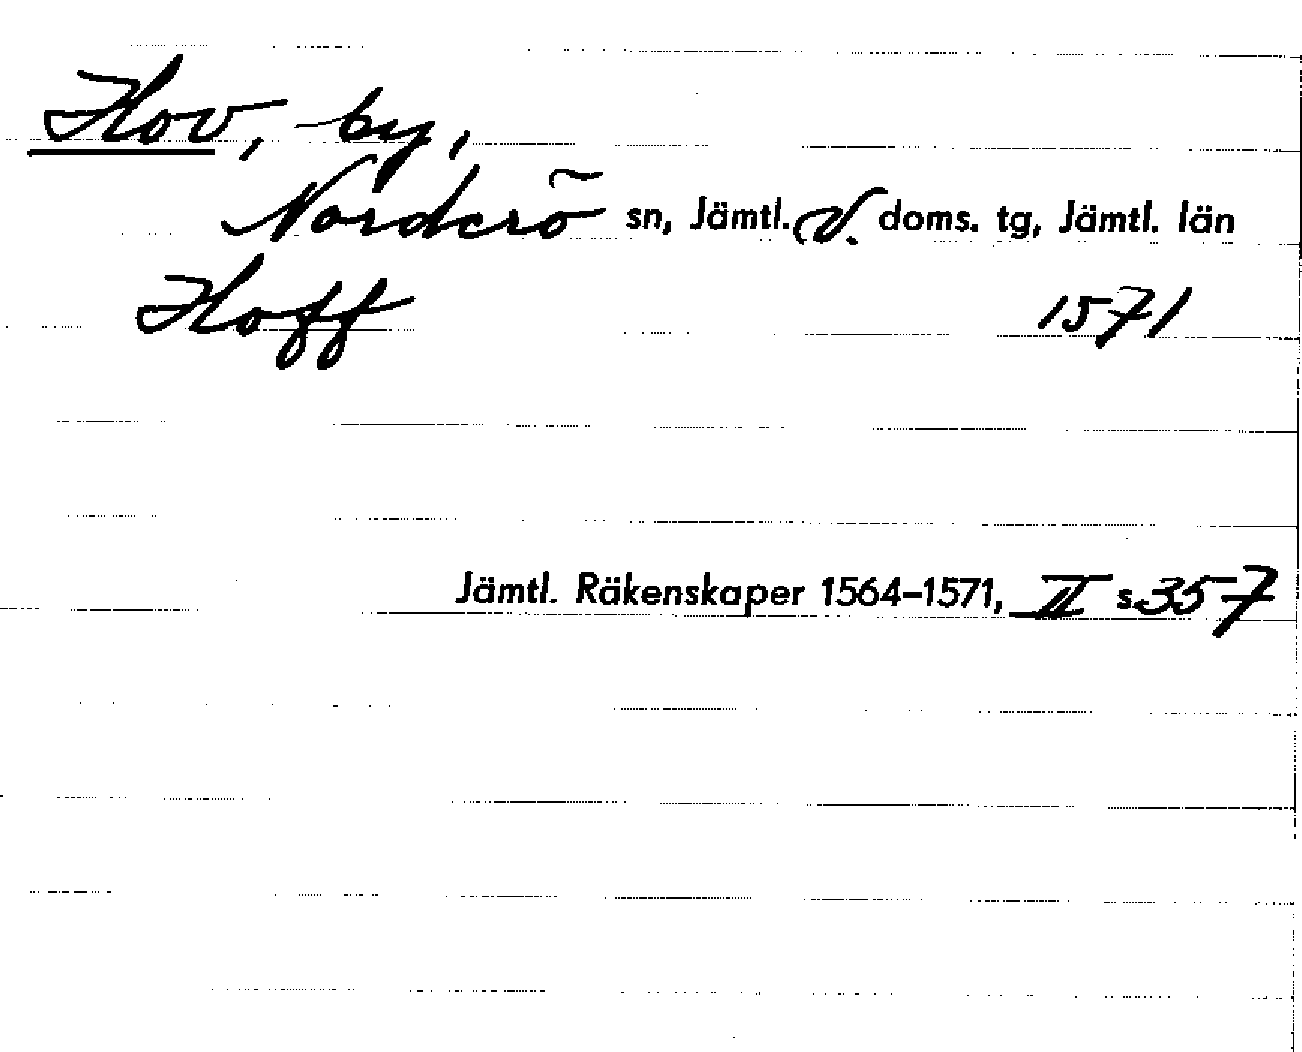 Hov, by,
Norderö sn, Jämtl. V. doms. tg, Jämtl. län
Hoff 1571
Jämtl. Räkenskaper 1564-1571, II s. 357